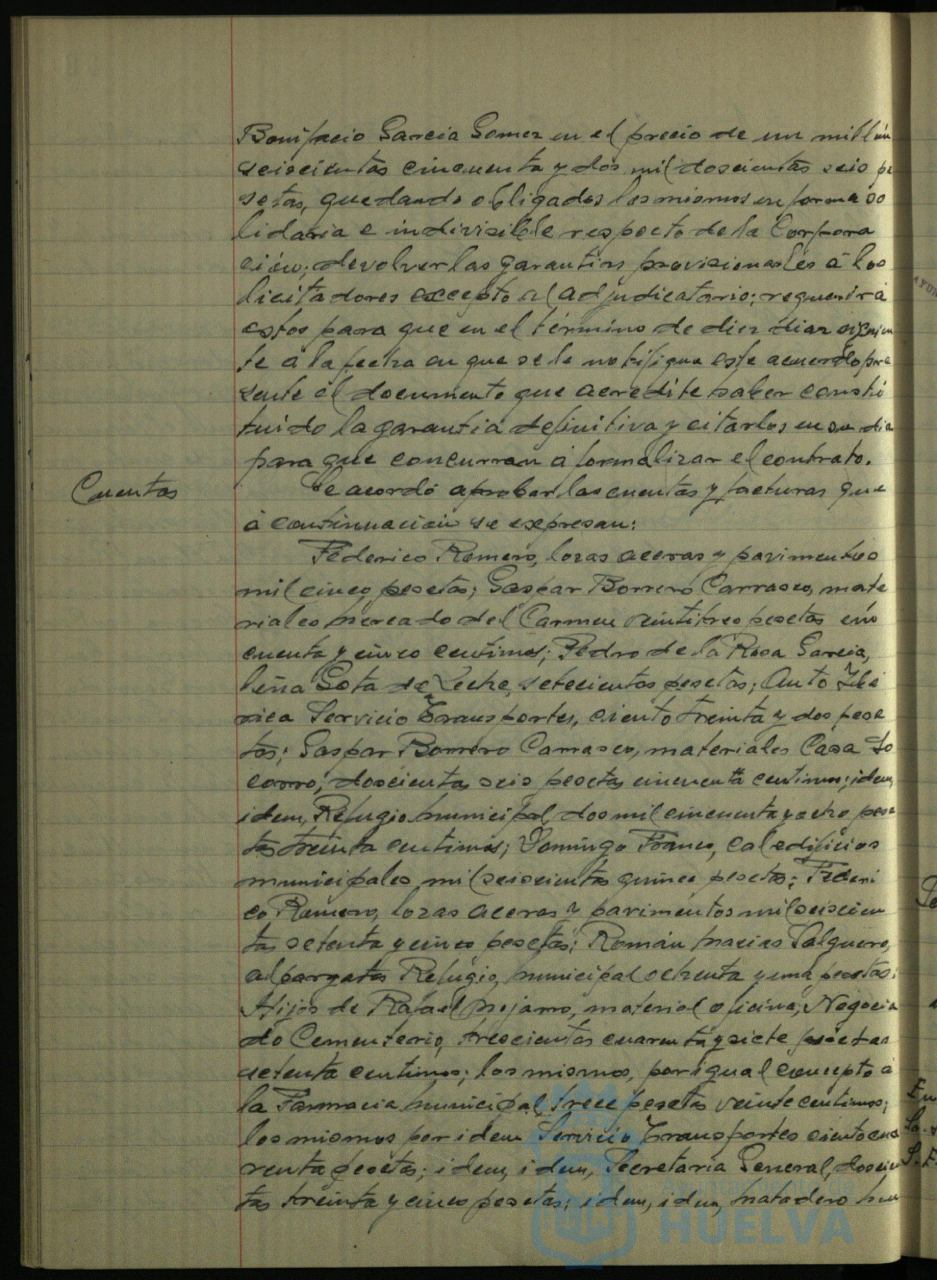 Bonifacio Garcia Gomez en el precio de un millón
seiscientas cincuenta y dos mil doscientas seis pe
setas, quedando obligados los mismos en forma so
lidaria e indivisible respecto de la Corpora
ción; devolver las garantias provisionales á los
licitadores excepto al adjudicatario; requerir á
estos para que en el término de diez dias siguien
te á la fecha en que se le notifique este acuerdo pre
sente el documento que acredite haber consti
tuido la garantia definitiva y citarlos en su dia
para que concurran á formalizar el contrato.
Cuentas
Se acordó aprobar las cuentas y facturas que
á continuación se expresan:
Federico Romero, losas aceras y pavimentos
mil cinco pesetas; Gaspar Borrero Carrasco, mate
riales mercado del Carmen veintitres pesetas cin
cuenta y cinco centimos; Pedro de la Rosa Garcia,
leña Gota de Leche, setecientas pesetas; Auto Ibé
rica Servicio Transportes, ciento treinta y dos pese
tas; Gaspar Borrero Carrasco, materiales Casa So
corro, doscientas seis pesetas cincuenta centimos; idem,
idem, Refugio municipal, dos mil cincuenta y ocho pese
tas treinta centimos; Domingo Franco, cal edificios
municipales, mil seiscientas quince pesetas; Federi
co Romero, losas aceras y pavimentos mil seiscien
tas setenta y cinco pesetas; Román Macias Salguero,
alpargatas Refugio municipal ochenta y una pesetas;
Hijos de Rafael Mojarro, material oficina, Negocia
do Cementerio, trescientas cuarenta y siete pesetas
setenta centimos; los mismos, por igual concepto á
la Farmacia municipal trece pesetas veinte centimos;
los mismos por idem Servicio Transportes ciento cua
renta pesetas; idem, idem, Secretaria General, doscien
tas treinta y cinco pesetas; idem, idem, Matadero mu
Ayuntamiento de
HUELVA